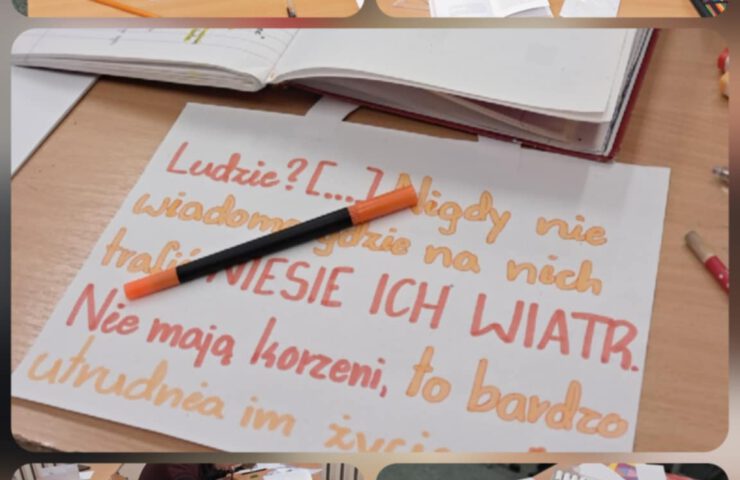 Ludzie? [...] Nigdy nie
wiadomo gdzie na nich
trafić NIESIE ICH WIATR.
Nie mają korzeni, to bardzo
utrudnia im życie